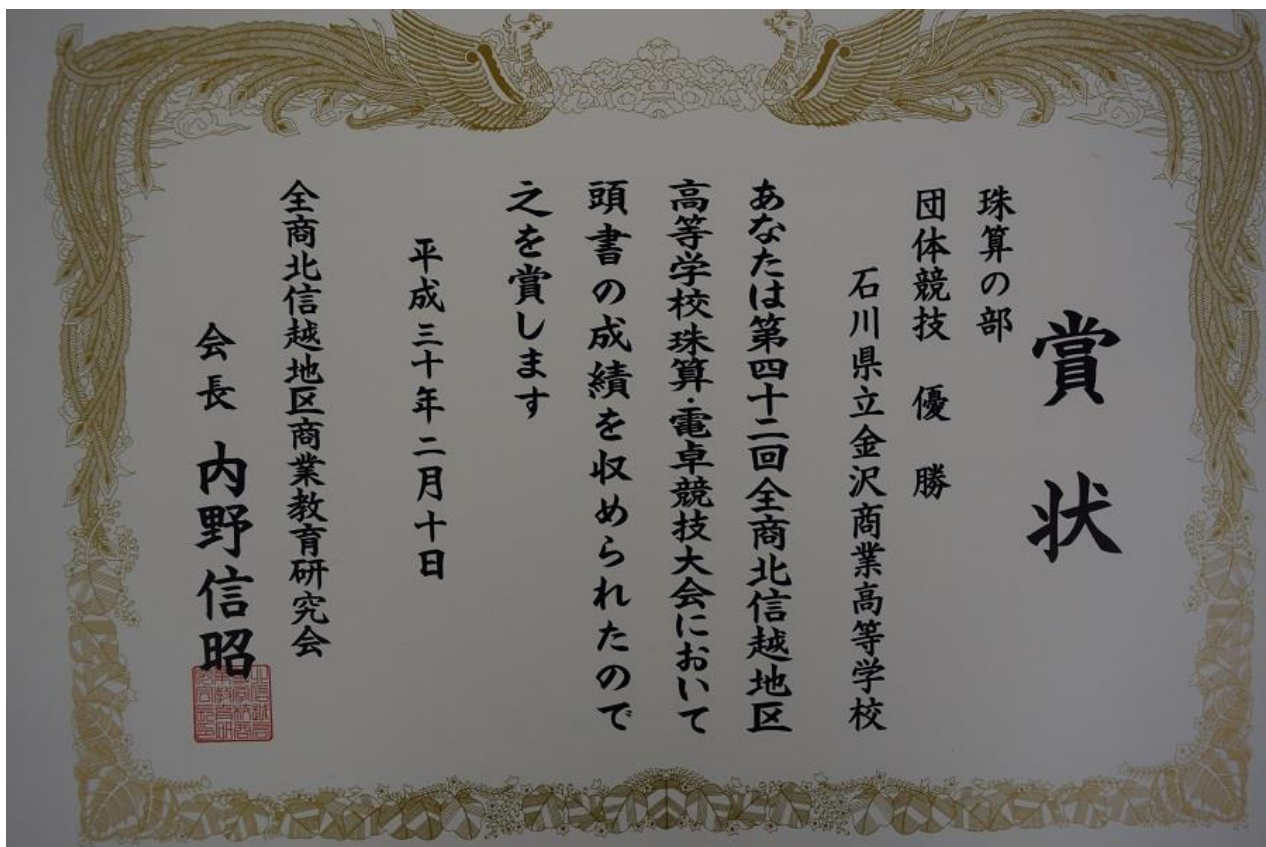 賞状
珠算の部
団体競技 優勝
石川県立金沢商業高等学校
あなたは第四十二回全商北信越地区
高等学校珠算・電卓競技大会において
頭書の成績を収められたので
之を賞します
平成三十年二月十日
全商北信越地区商業教育研究会
会長 内野信昭